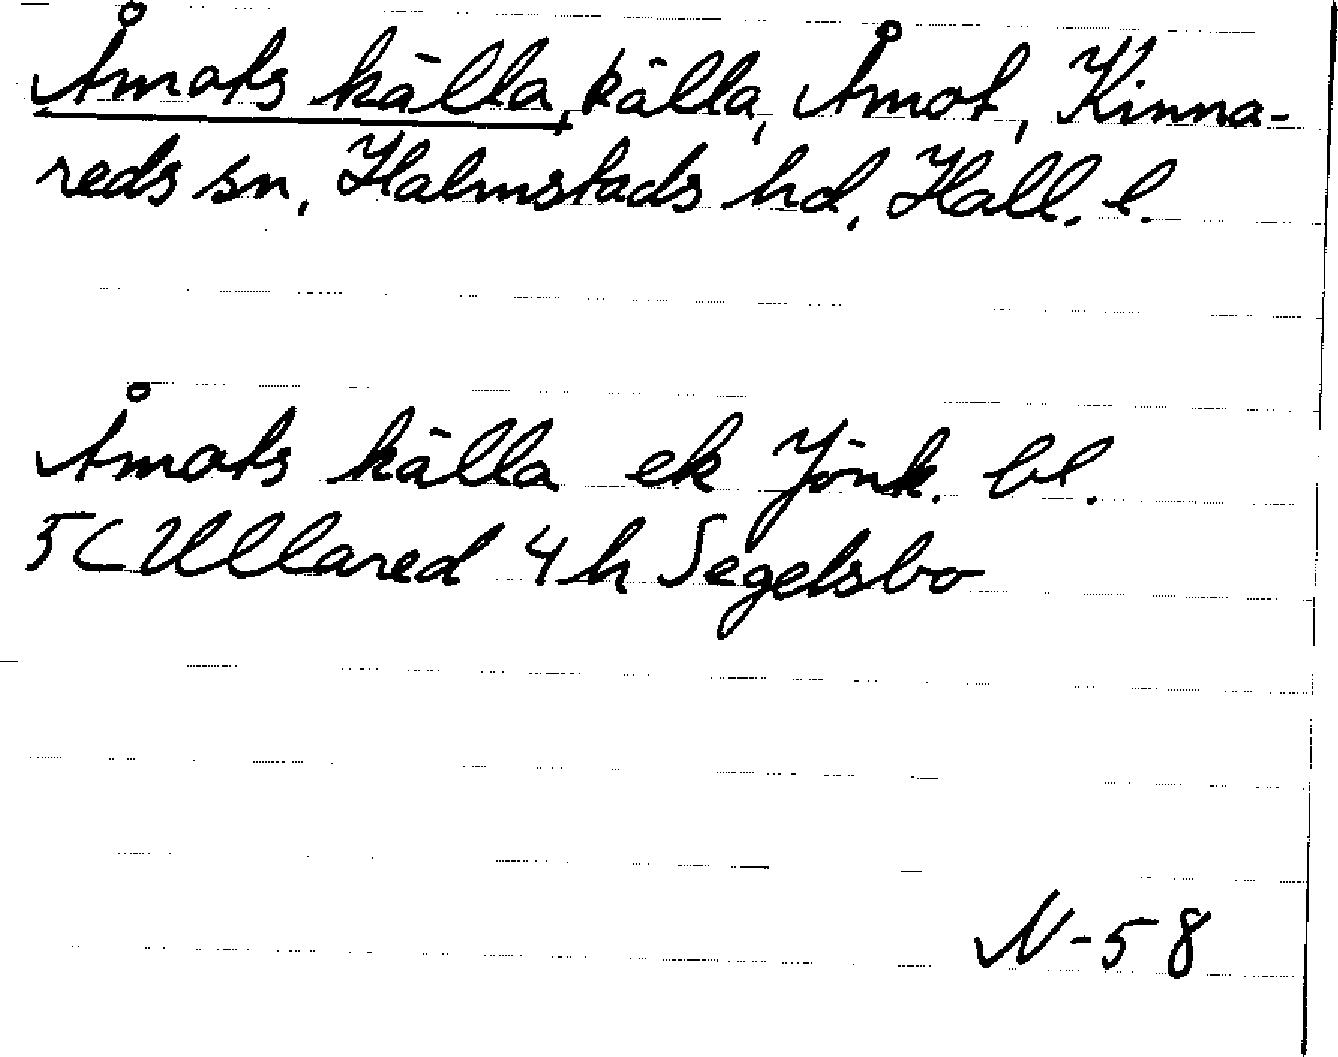 Åmots källa, källa, Åmot, Kinna-
reds sn, Halmstads hd, Hall. l.
Åmots källa ek Jönk. bl.
5C Ullared 4h Segelsbo
N-58